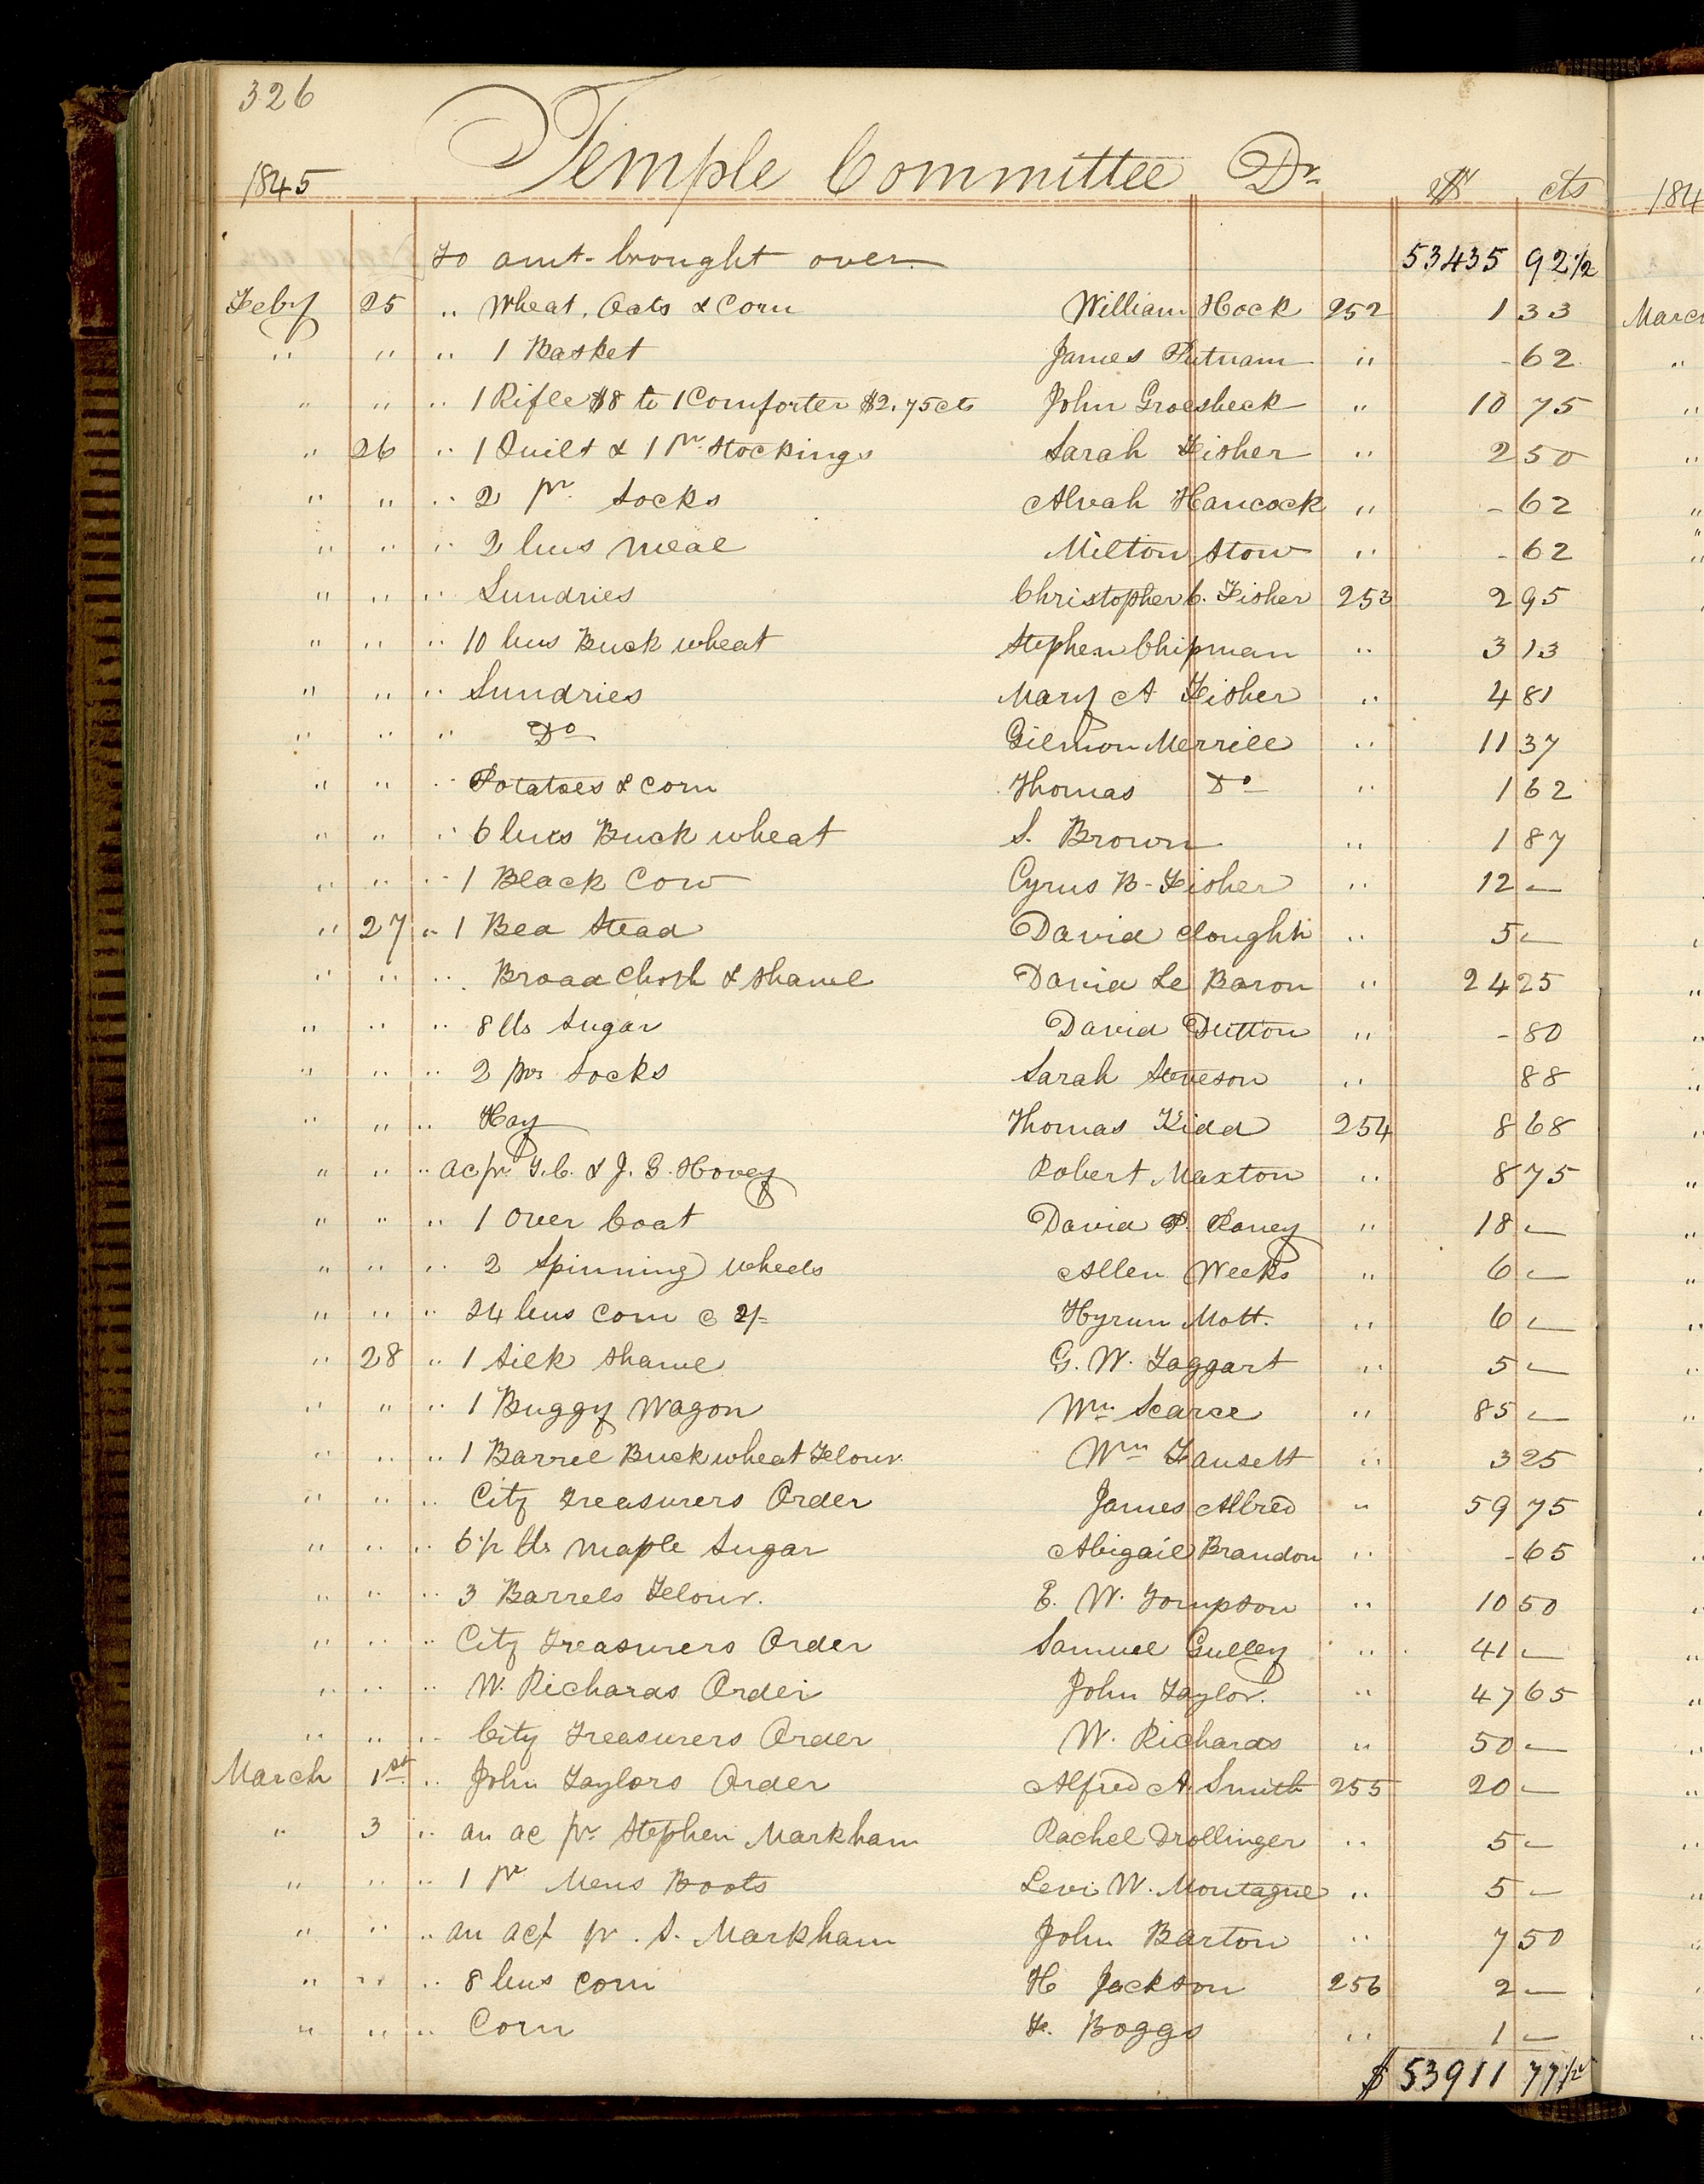 326
1845 Temple Committee Dr. $ cts
To amt. brought over 53435 92 1/2
Feby 25 " Wheat, Oats & Corn William Hock 252 1 33
" " " 1 Basket James Putnam " - 62
" " " 1 Rifle $8 to 1 Comforter $2.75cts John Groesbeck " 10 75
" 26 " 1 Quilt & 1 pr. Stockings Sarah Fisher " 2 50
" " " 2 pr. Socks Alvah Hancock " - 62
" " " 2 bus Meal Milton Stow " - 62
" " " Sundries Christopher C. Fisher 253 2 95
" " " 10 bus Buck wheat Stephen Chipman " 3 13
" " " Sundries Mary A Fisher " 4 81
" " " Do Gilmon Merrill " 11 37
" " " Potatoes & Corn Thomas Do " 1 62
" " " 6 bus Buck wheat S. Brown " 1 87
" " " 1 Black Cow Cyrus B. Fisher " 12 —
" 27 " 1 Bed Stead David Clough " 5 —
" " " Broad Cloth & Shawl David Le Baron " 24 25
" " " 8 lbs Sugar David Dutton " - 80
" " " 2 prs Socks Sarah " 88
" " " Hay Thomas Kidd 254 8 68
" " " ac pr. & J. Hovey Robert Maxton " 8 75
" " " 1 Over Coat David P. " 18 —
" " " 2 Spinning Wheels Allen Weeks " 6 —
" " " 24 bus Corn @ 2/- Hyrum Mott. " 6 —
" 28 " 1 Silk Shawl G. W. Taggart " 5 —
" " " 1 Buggy Wagon Wm. Searce " 85 —
" " " 1 Barrel Buckwheat Flour. Wm Fausett " 3 25
" " " City Treasurers Order James Allred " 59 75
" " " 6 1/2 lbs Maple Sugar Abigail Brandon " - 65
" " " 3 Barrels Flour. E. W. Tompson " 10 50
" " " City Treasurers Order Samuel Gulley " 41 —
" " " W. Richards Order John Taylor. " 47 65
" " " City Treasurers Order W. Richards " 50 —
March 1st " John Taylors Order Alfred A. Smith 255 20 —
" 3 " an ac pr. Stephen Markham Rachel Drollinger " 5 —
" " " 1 pr. Mens Boots Levi W. Montague " 5 —
" " " an act pr. S. Markham John Barton " 7 50
" " " 8 bus Corn H Jackson 256 2 —
" " " Corn F. Boggs " 1 —
$ 53911 77 1/2
184
March